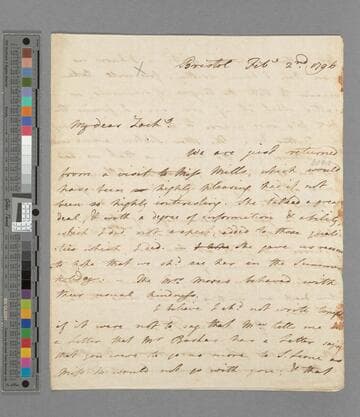 Bristol Feb.y 2.nd 1796
My dear Zach.y
We are just returned
from a visit to Miss Mills, which would
have been highly pleasing had it not
been so highly interesting. She talked a great
deal, & with a degree of information & ability
which I did not expect, added to those quali-
ties which I did. — she gave us reason
to hope that we sh.d see her in the Summer
holidays. — The Miss Mores behaved with
their usual kindness.
I believe I sh.d not wrote
if it were not to say that tells me
a letter that Mr has a letter
that you were to go no more to S: Leone as
Miss M. would not go with you, & that